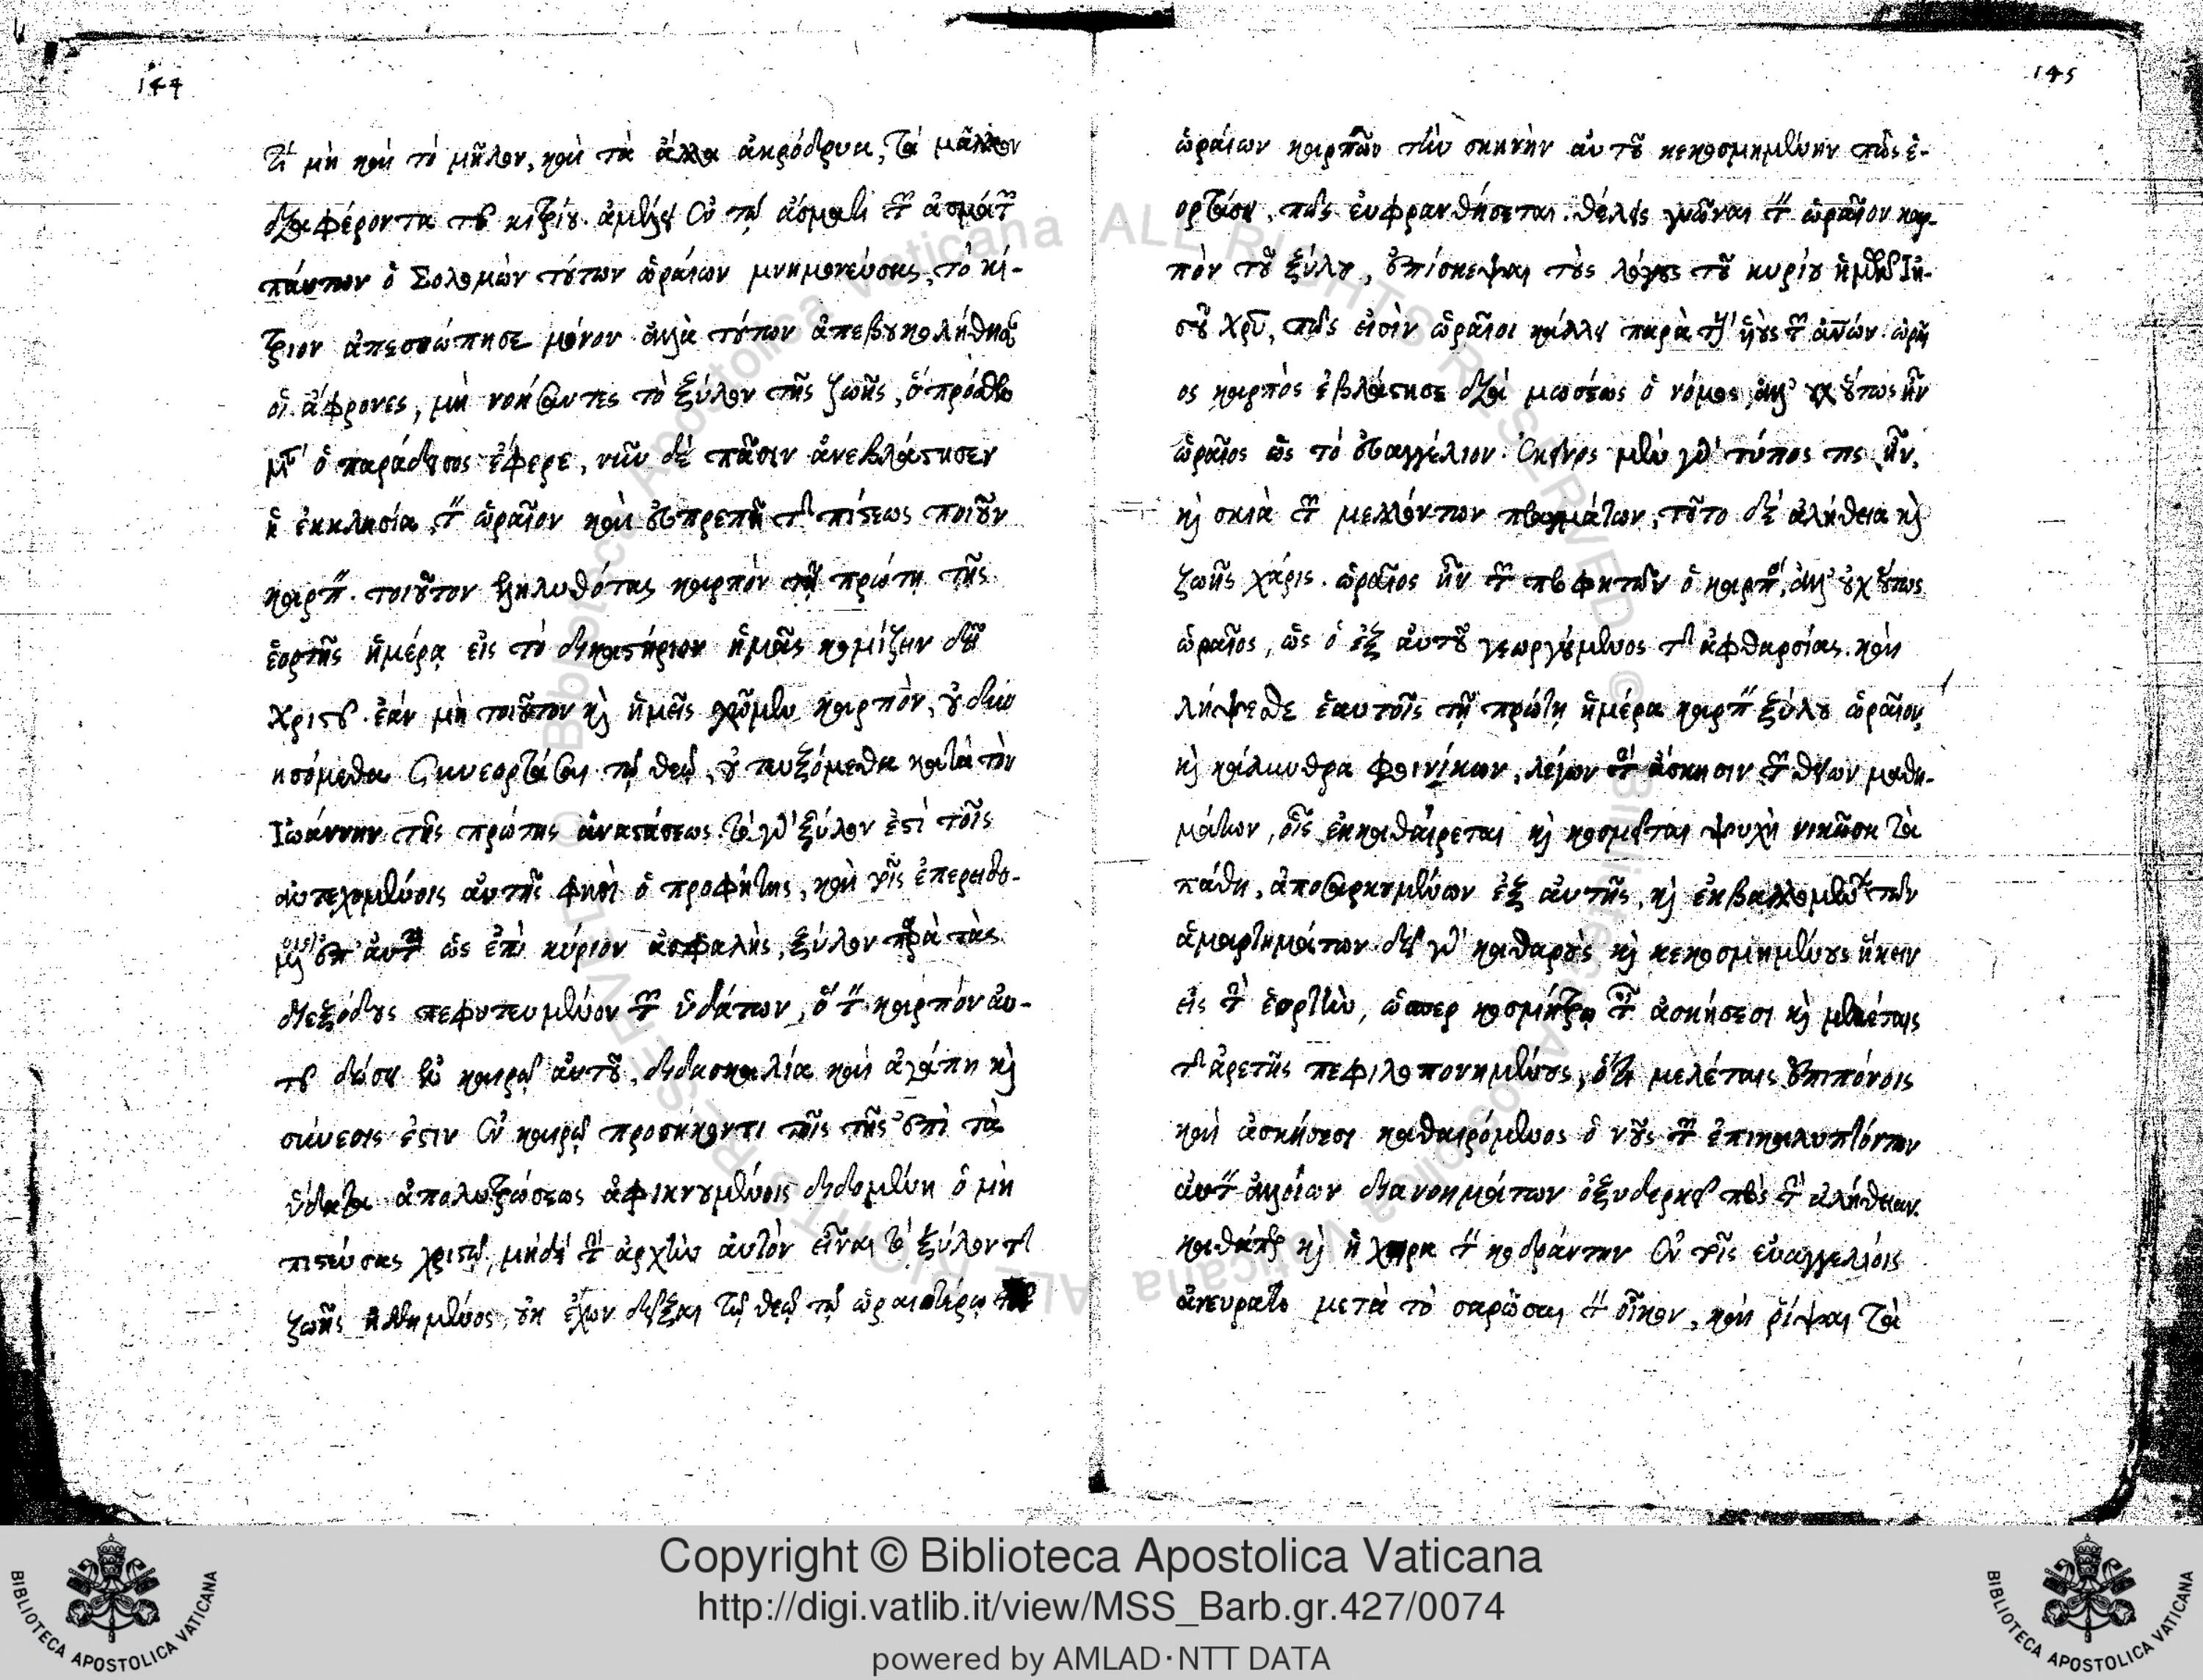 144
τί μὴ καὶ τὸ μῆλον, καὶ τὰ ἄλλα ἀκρόδρυα, τὰ μᾶλλον
διαφέροντα τοῦ κιτρίου. ἀμέλει ἐν τῷ ᾄσματι τῶν ᾀσμάτων
πάντων ὁ Σολομὼν τούτων ὡραίων μνημονεύσας, τὸ κί-
τριον ἀπεσιώπησε μόνον ἀλλὰ τούτων ἀπεβουκολήθησαν
οἱ ἄφρονες, μὴ νοήσαντες τὸ ξύλον τῆς ζωῆς, ὃ πρόσθεν
μὲν ὁ παράδεισος ἔφερε, νῦν δὲ πᾶσιν ἀνεβλάστησεν
ἡ ἐκκλησία, τὸν ὡραῖον καὶ εὐπρεπῆ τῆς πίστεως ποιοῦν
καρπόν. τοιοῦτον ἐληλυθότας καρπὸν τῇ πρώτῃ τῆς
ἑορτῆς ἡμέρᾳ εἰς τὸ δικαστήριον ἡμᾶς κομίζειν δεῖ
Χριστοῦ. ἐὰν μὴ τοιοῦτον καὶ ἡμεῖς καρπὸν, οὐ δυν
ησόμεθα συνεορτάσαι τῷ θεῷ, οὐ τευξόμεθα κατὰ τὸν
Ἰωάννην τῆς πρώτης ἀναστάσεως. τὸ γὰρ ξύλον ἐστὶ τοῖς
ἀντεχομένοις αὐτῆς φησὶ ὁ προφήτης, καὶ τοῖς ἐπερειδο-
μένοις ἐπ' αὐτὴν ὡς ἐπὶ κύριον ἀσφαλὴς, ξύλον παρὰ τὰς
διεξόδους πεφυτευμένον τῶν ὑδάτων, ὃ τὸν καρπὸν αὐ-
τοῦ δώσει ἐν καιρῷ αὐτοῦ. διδασκαλία καὶ ἀγάπη καὶ
σύνεσις ἐστιν ἐν καιρῷ προσήκοντι τοῖς τῆς ἐπὶ τὰ
ὕδατα ἀπολυτρώσεως ἀφικνουμένοις διδομένη ὁ μὴ
πιστεύσας χριστῷ, μηδὲ τὴν ἀρχὴν αὐτὸν εἶναι τὸ ξύλον τῆς
ζωῆς, οὐκ ἔχων δεῖξαι τῷ θεῷ τῷ ὡραιοτέρῳ
145
ὡραίων καρπῶν τὴν σκηνὴν αὐτοῦ κεκοσμημένην πῶς ἑ-
ορτάσει, πῶς εὐφρανθήσεται. θέλεις γνῶναι τὸν ὡραῖον καρ-
πὸν τοῦ ξύλου, ἐπίσκεψαι τοὺς λόγους τοῦ κυρίου ἡμῶν Ἰη-
σοῦ Χριστοῦ, πῶς εἰσὶν ὡραῖοι κάλλει παρὰ τοὺς υἱοὺς τῶν ἀνων. ὡραῖ
ος καρπὸς ἐβλάστησε διὰ μωσέως ὁ νόμος, ἀλλ' οὐχ οὕτως ἦν
ὡραῖος ὡς τὸ εὐαγγέλιον. ἐκεῖνος μὲν γὰρ τύπος τις ἦν,
καὶ σκιὰ τῶν μελλόντων πραγμάτων, τοῦτο δὲ ἀλήθεια καὶ
ζωῆς χάρις. ὡραῖος ἦν τῶν προφητῶν ὁ καρπός, ἀλλ' οὐχ οὕτως
ὡραῖος, ὡς ὁ ἐξ αὐτοῦ γεωργούμενος τῆς ἀφθαρσίας. καὶ
λήψεσθε ἑαυτοῖς τῇ πρώτῃ ἡμέρᾳ καρπὸν ξύλου ὡραῖον,
καὶ κάλλυνθρα φοινίκων, λέγων τὴν ἄσκησιν τῶν θείων μαθη-
μάτων, οἷς ἐκκαθαίρεται καὶ κοσμεῖται ψυχὴ νικῶσα τὰ
πάθη, ἀποσαρκουμένων ἐξ αὐτῆς, καὶ ἐκβαλλομένων τῶν
ἁμαρτημάτων. δεῖ γὰρ καθαροὺς καὶ κεκοσμημένους ἥκειν
εἰς τὴν ἑορτὴν, ὥσπερ ἀσκήσεσι καὶ μελέταις
τῆς ἀρετῆς πεφιλοπονημένους, ὅτι μελέταις ἐπιπόνοις
καὶ ἀσκήσεσι καθαιρόμενος ὁ νοῦς τῶν ἐπικαλυπτόντων
αὐτὸν ἀλλοίων διανοημάτων ὀξυδερκεῖ πρὸς τὴν ἀλήθειαν.
καθάπερ καὶ ἡ χήρα τὸν κοδράντην ἐν τοῖς εὐαγγελίοις
ἀνεύρατο μετὰ τὸ σαρῶσαι τὸν οἶκον, καὶ ῥίψαι τὰ
Copyright © Biblioteca Apostolica Vaticana
http://digi.vatlib.it/view/MSS_Barb.gr.427/0074
powered by AMLAD·NTT DATA
BIBLIOTECA APOSTOLICA VATICANA
BIBLIOTECA APOSTOLICA VATICANA